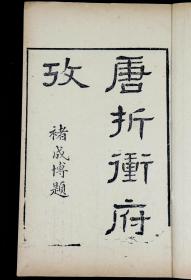 唐折衝府
攷
褚成博題